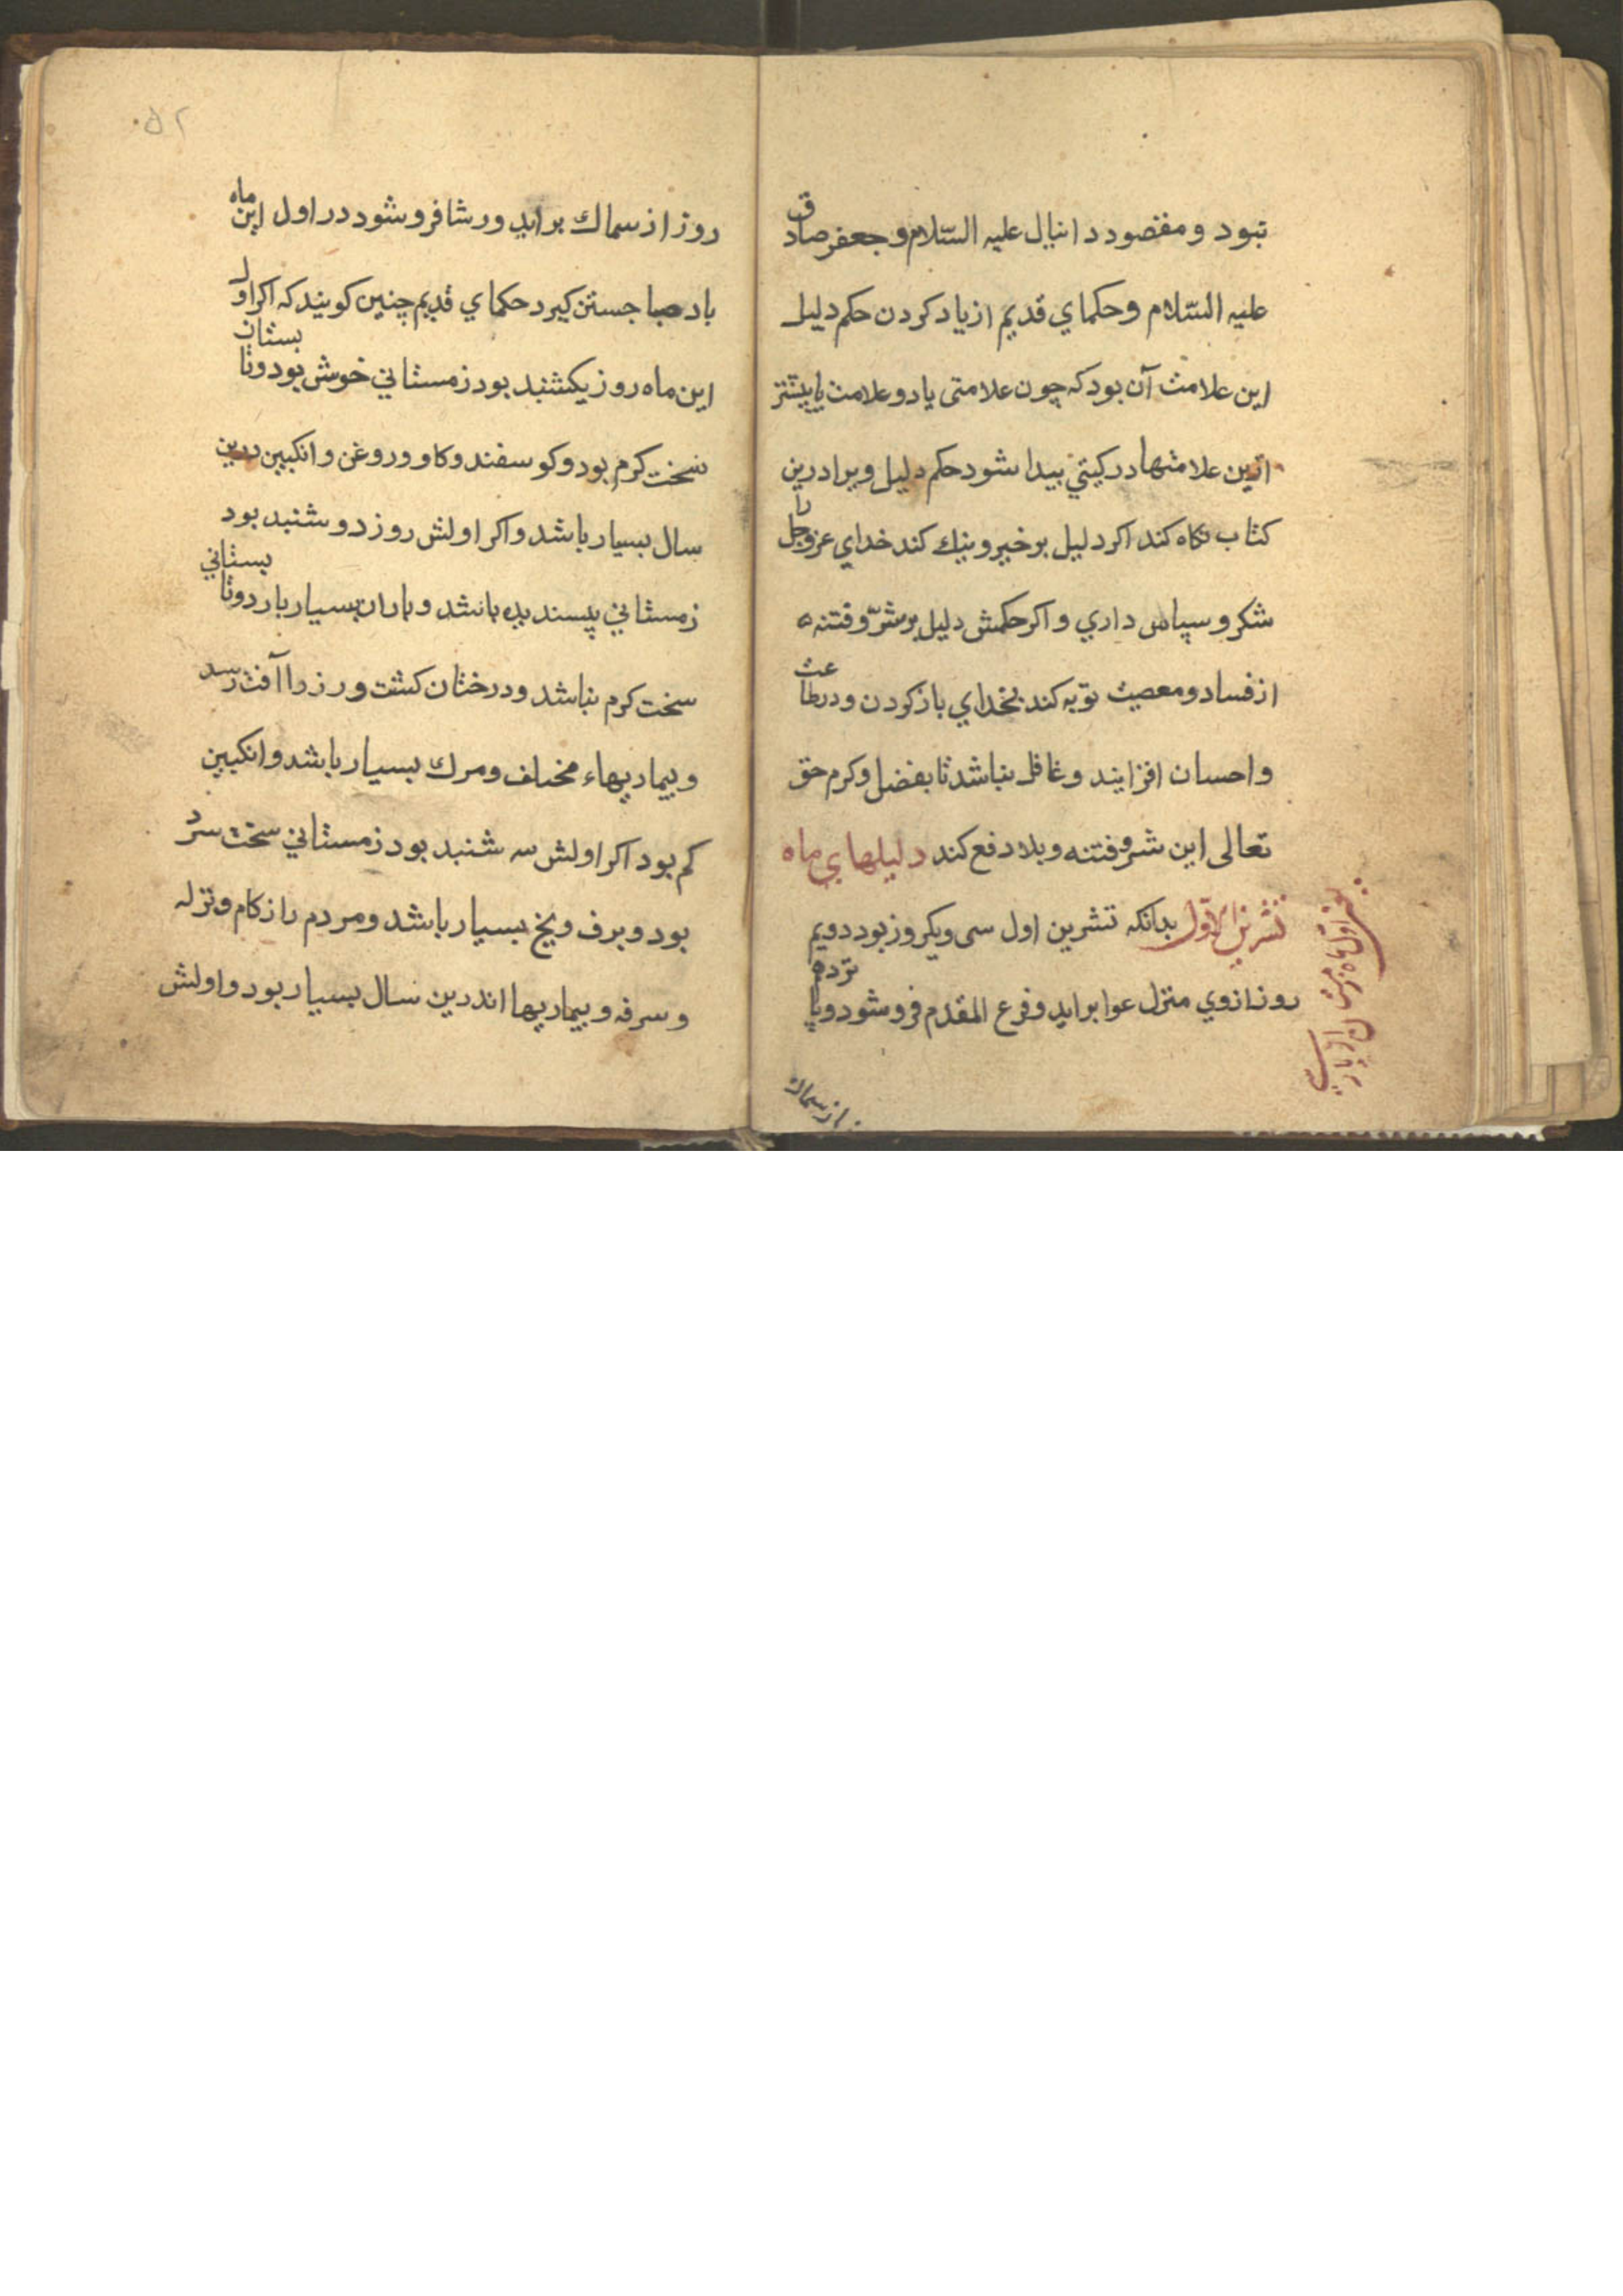 نبود و مقصود دانیال علیه السّلام و جعفر صادق
علیه السّلام و حکمای قدیم از یاد کردن حکم دلیل
این علامت آن بود که چون علامتی یا دو علامت یا بیشتر
ازین علامتها در کیتي پیدا شود حکم دلیل ویرا درین
کتاب نکاه کند اکر دلیل بر خیر و نیك کند خدای عز وجل را
شکر و سپاس داري و اکر حکمش دلیل بر شرّ و فتنه
از فساد و معصیت توبه کند بخدای باز کردن و در طاعت
و احسان افزایند و غافل نباشد تا بفضل و کرم حق
تعالی این شر و فتنه و بلا دفع کند دلیلهاي ماه
تشرین الاوّل بدانکه تشرین اول سی و یکروز بود دویم
روز ازوي منزل عوا براید و فرع المقدم فرو شود و پانزدهم
از سماك
۵۲
روز از سماك براید و رشا فرو شود در اول این ماه
باد صبا جستن کیرد حکماي قدیم چنین کویند که اکر اول
این ماه روز یکشنبد بود زمستاني خوش بود و تابستان
سخت کرم بود و کوسفند و کاو و روغن و انکبین درین
سال بسیار باشد و اکر اولش روز دوشنبد بود
زمستاني پسندیده باشد و باران بسیار بارد و تابستاني
سخت کرم نباشد و درختان کشت و رز را آفت رسد
و بیماریهاء مختلف و مرك بسیار باشد و انکبین
کم بود اکر اولش سه شنبد بود زمستاني سخت سرد
بود و برف و یخ بسیار باشد و مردم را زکام و نزله
و سرفه و بیماریها اندرین سال بسیار بود و اولش